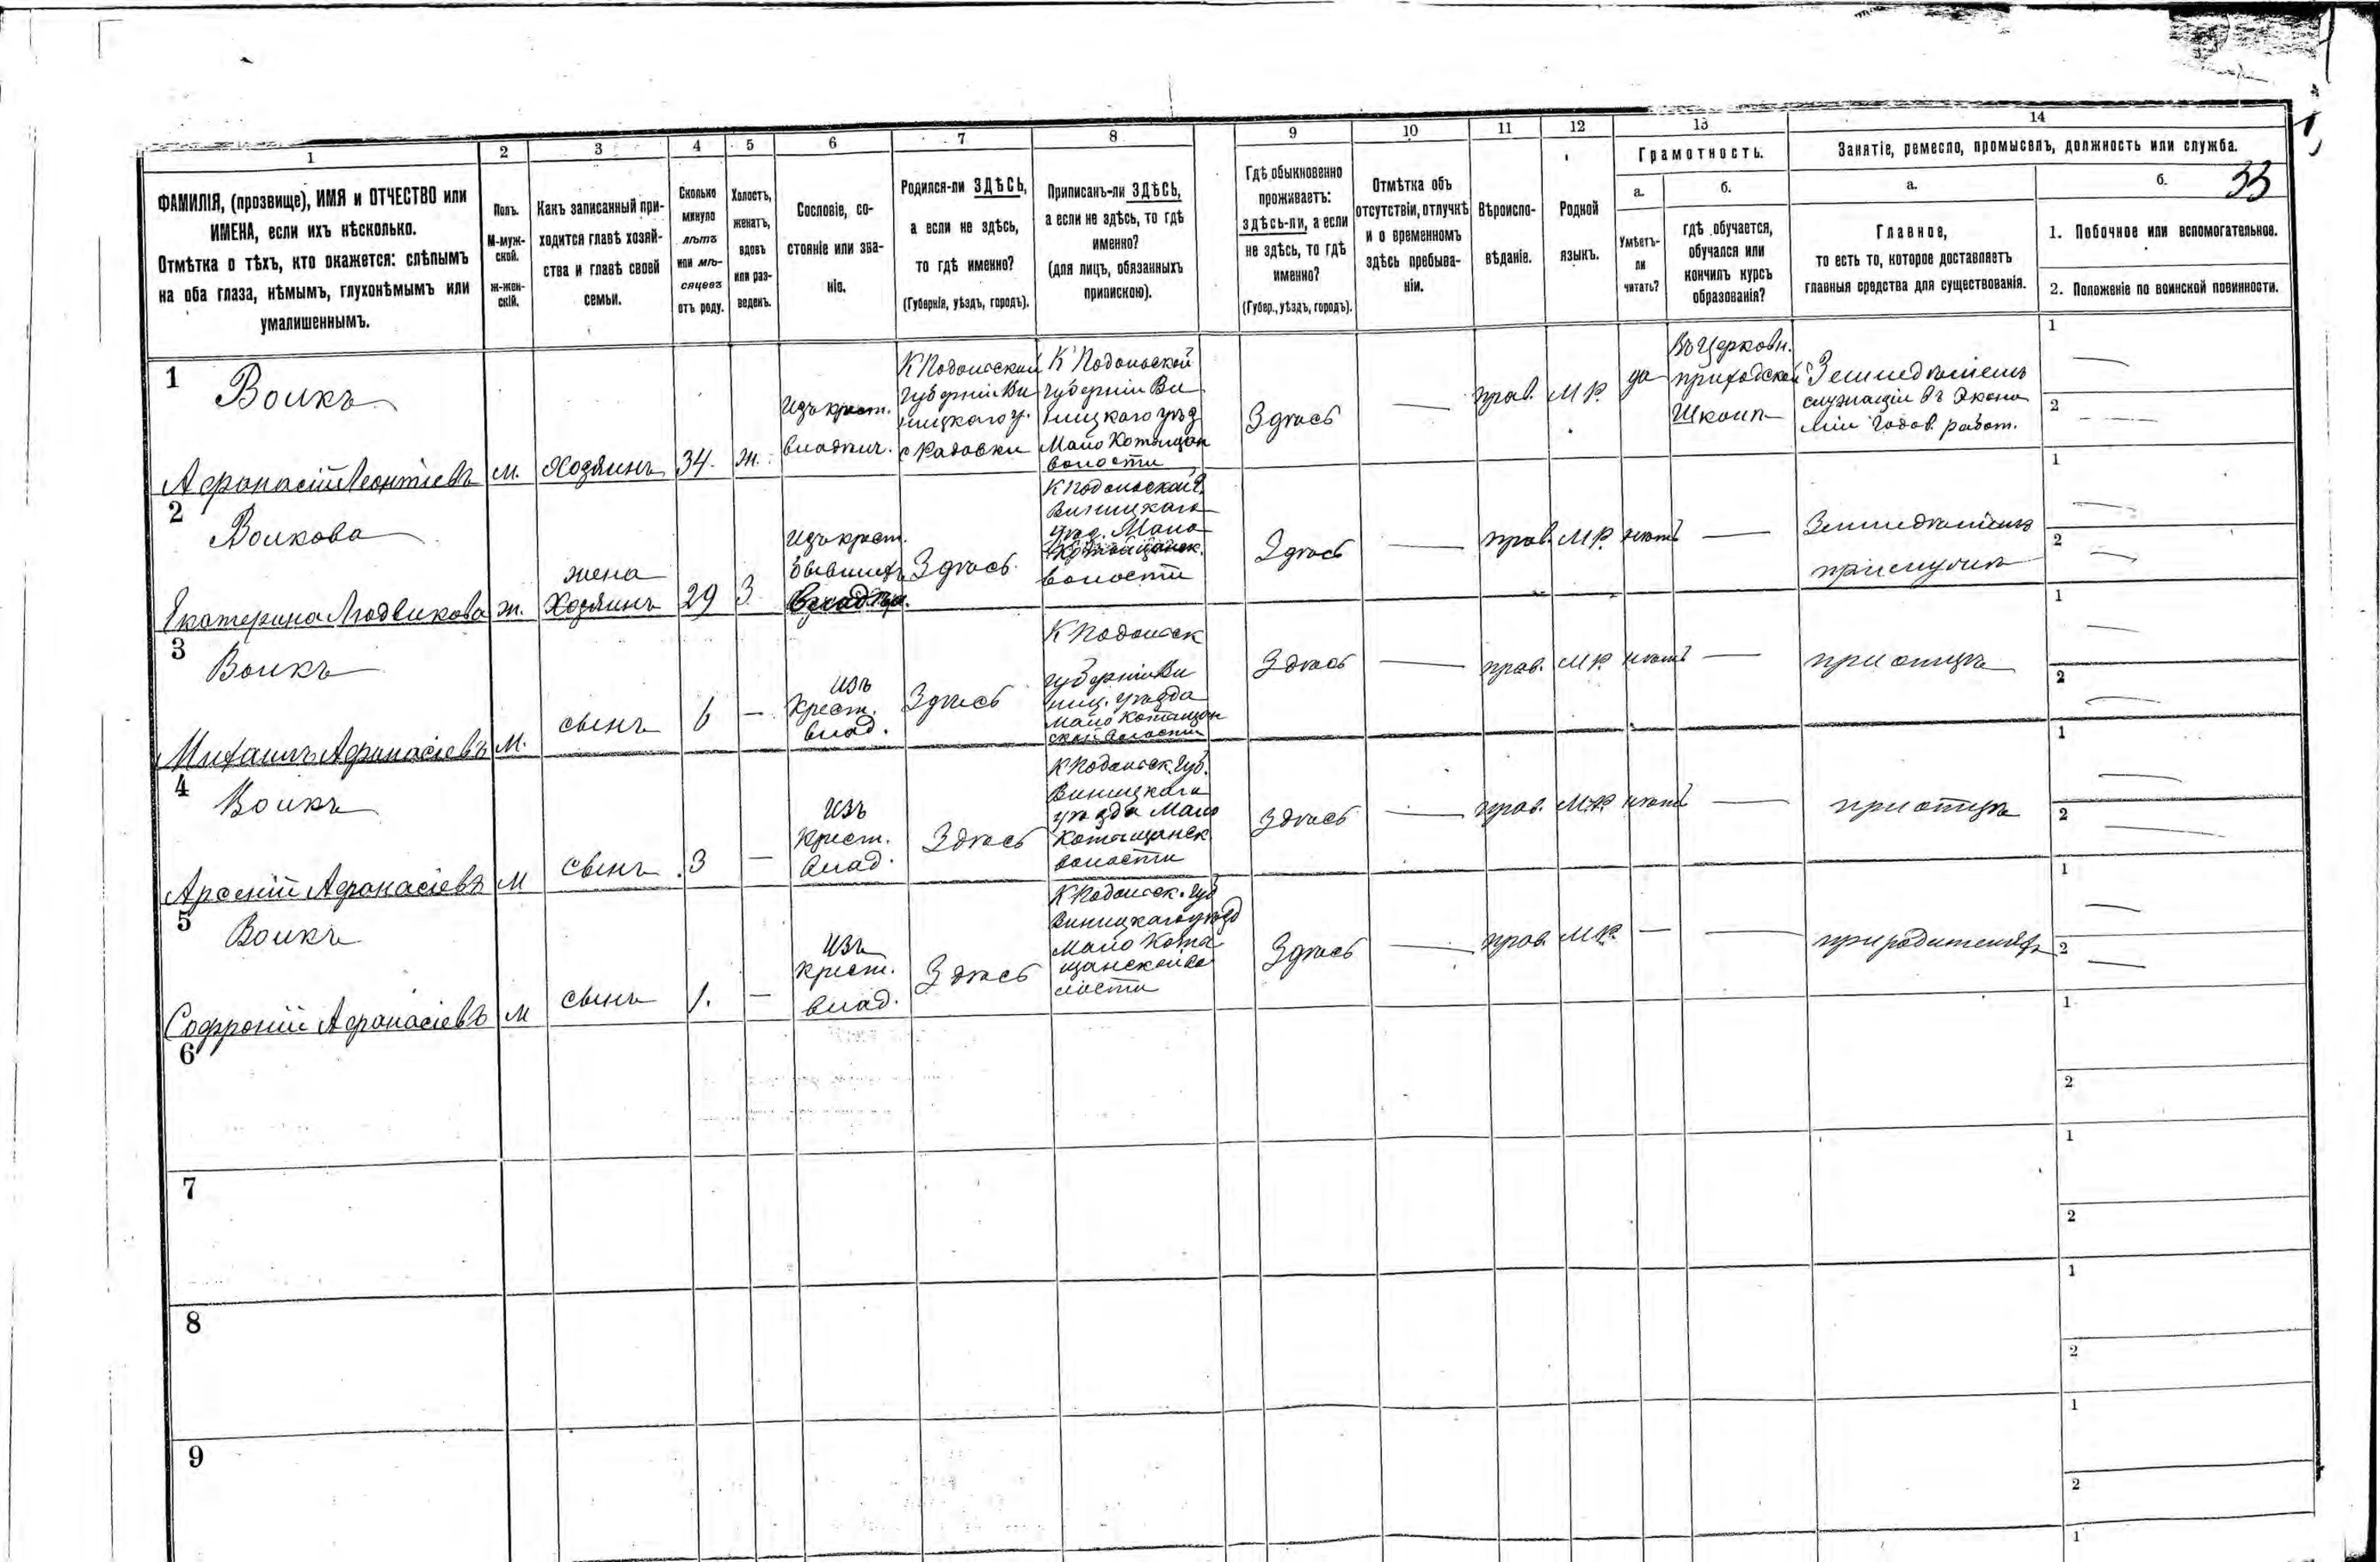 1
2
3
4
5
6
7
8
9
10
11
12
13
14
33
ФАМИЛІЯ, (прозвище), ИМЯ и ОТЧЕСТВО или
ИМЕНА, если ихъ нѣсколько.
Отмѣтка о тѣхъ, кто окажется: слѣпымъ
на оба глаза, нѣмымъ, глухонѣмымъ или
умалишеннымъ.
Полъ.
М-муж-
ской.
ж-жен-
скій.
Какъ записанный при-
ходится главѣ хозяй-
ства и главѣ своей
семьи.
Сколько
минуло
лѣтъ
или мѣ-
сяцевъ
отъ роду.
Холостъ,
женатъ,
вдовъ
или раз-
веденъ.
Сословіе, со-
стояніе или зва-
ніе.
Родился-ли ЗДѢСЬ,
а если не здѣсь,
то гдѣ именно?
(Губернія, уѣздъ, городъ).
Приписанъ-ли ЗДѢСЬ,
а если не здѣсь, то гдѣ
именно?
(для лицъ, обязанныхъ
припискою).
Гдѣ обыкновенно
проживаетъ:
здѣсь-ли, а если
не здѣсь, то гдѣ
именно?
(Губер., уѣздъ, городъ).
Отмѣтка объ
отсутствіи, отлучкѣ
и о временномъ
здѣсь пребыва-
ніи.
Вѣроиспо-
вѣданіе.
Родной
языкъ.
Грамотность.
а.
Умѣетъ-
ли
читать?
б.
гдѣ обучается,
обучался или
кончилъ курсъ
образованія?
Занятіе, ремесло, промыселъ, должность или служба.
а.
Главное,
то есть то, которое доставляетъ
главныя средства для существованія.
б.
1. Побочное или вспомогательное.
2. Положеніе по воинской повинности.
1
Волкъ
Афанасій Леонтіевъ
м.
Хозяинъ
34.
ж.
Изъ крест.
владѣл.
К Подольской
губерніи Ви
ницкаго у.
с Радовки
К Подольской
губерніи Ви
ницкаго уѣзд
Мало
волости
Здѣсь
—
прав.
М Р.
да
Въ Церковн.
приходской
Школѣ
Земледѣліемъ
служащій въ Эконо
міи Годов. работ.
1 —
2 —
2
Волкова
Екатерина Людвикова
ж.
жена
Хозяинъ
29
З.
Изъ крест.
бывшихъ
Здѣсь.
К Подольской г.
Виницкаго
уѣзд. Мало
волости
Здѣсь
—
прав.
М Р.
нѣтъ
—
Земледѣліемъ
1 —
2 —
3
Волкъ
Михаилъ Афанасіевъ
М.
сынъ
6
—
изъ
Крест.
влад.
Здѣсь
К Подольск
губерніи Ви
ниц. уѣзда
Мало
ской волости
Здѣсь
—
прав.
М Р.
нѣтъ
—
при отцѣ
1 —
2 —
4
Волкъ
Арсеній Афанасіевъ
М
сынъ
3
—
изъ
Крест.
влад.
Здѣсь
К Подольск. Губ.
Виницкаго
уѣзда Мало
волости
Здѣсь
—
прав.
М. Р.
нѣтъ
—
при отцѣ
1 —
2 —
5
Волкъ
Софроній Афанасіевъ
М
сынъ
1.
—
изъ
крест.
влад.
Здѣсь
К Подольск. Губ
Виницкаго уѣзд
Мало Кота
щанской во
лости
Здѣсь
—
прав.
М Р.
—
—
при родителяхъ
1 —
2 —
6
1
2
7
1
2
8
1
2
9
1
2
1